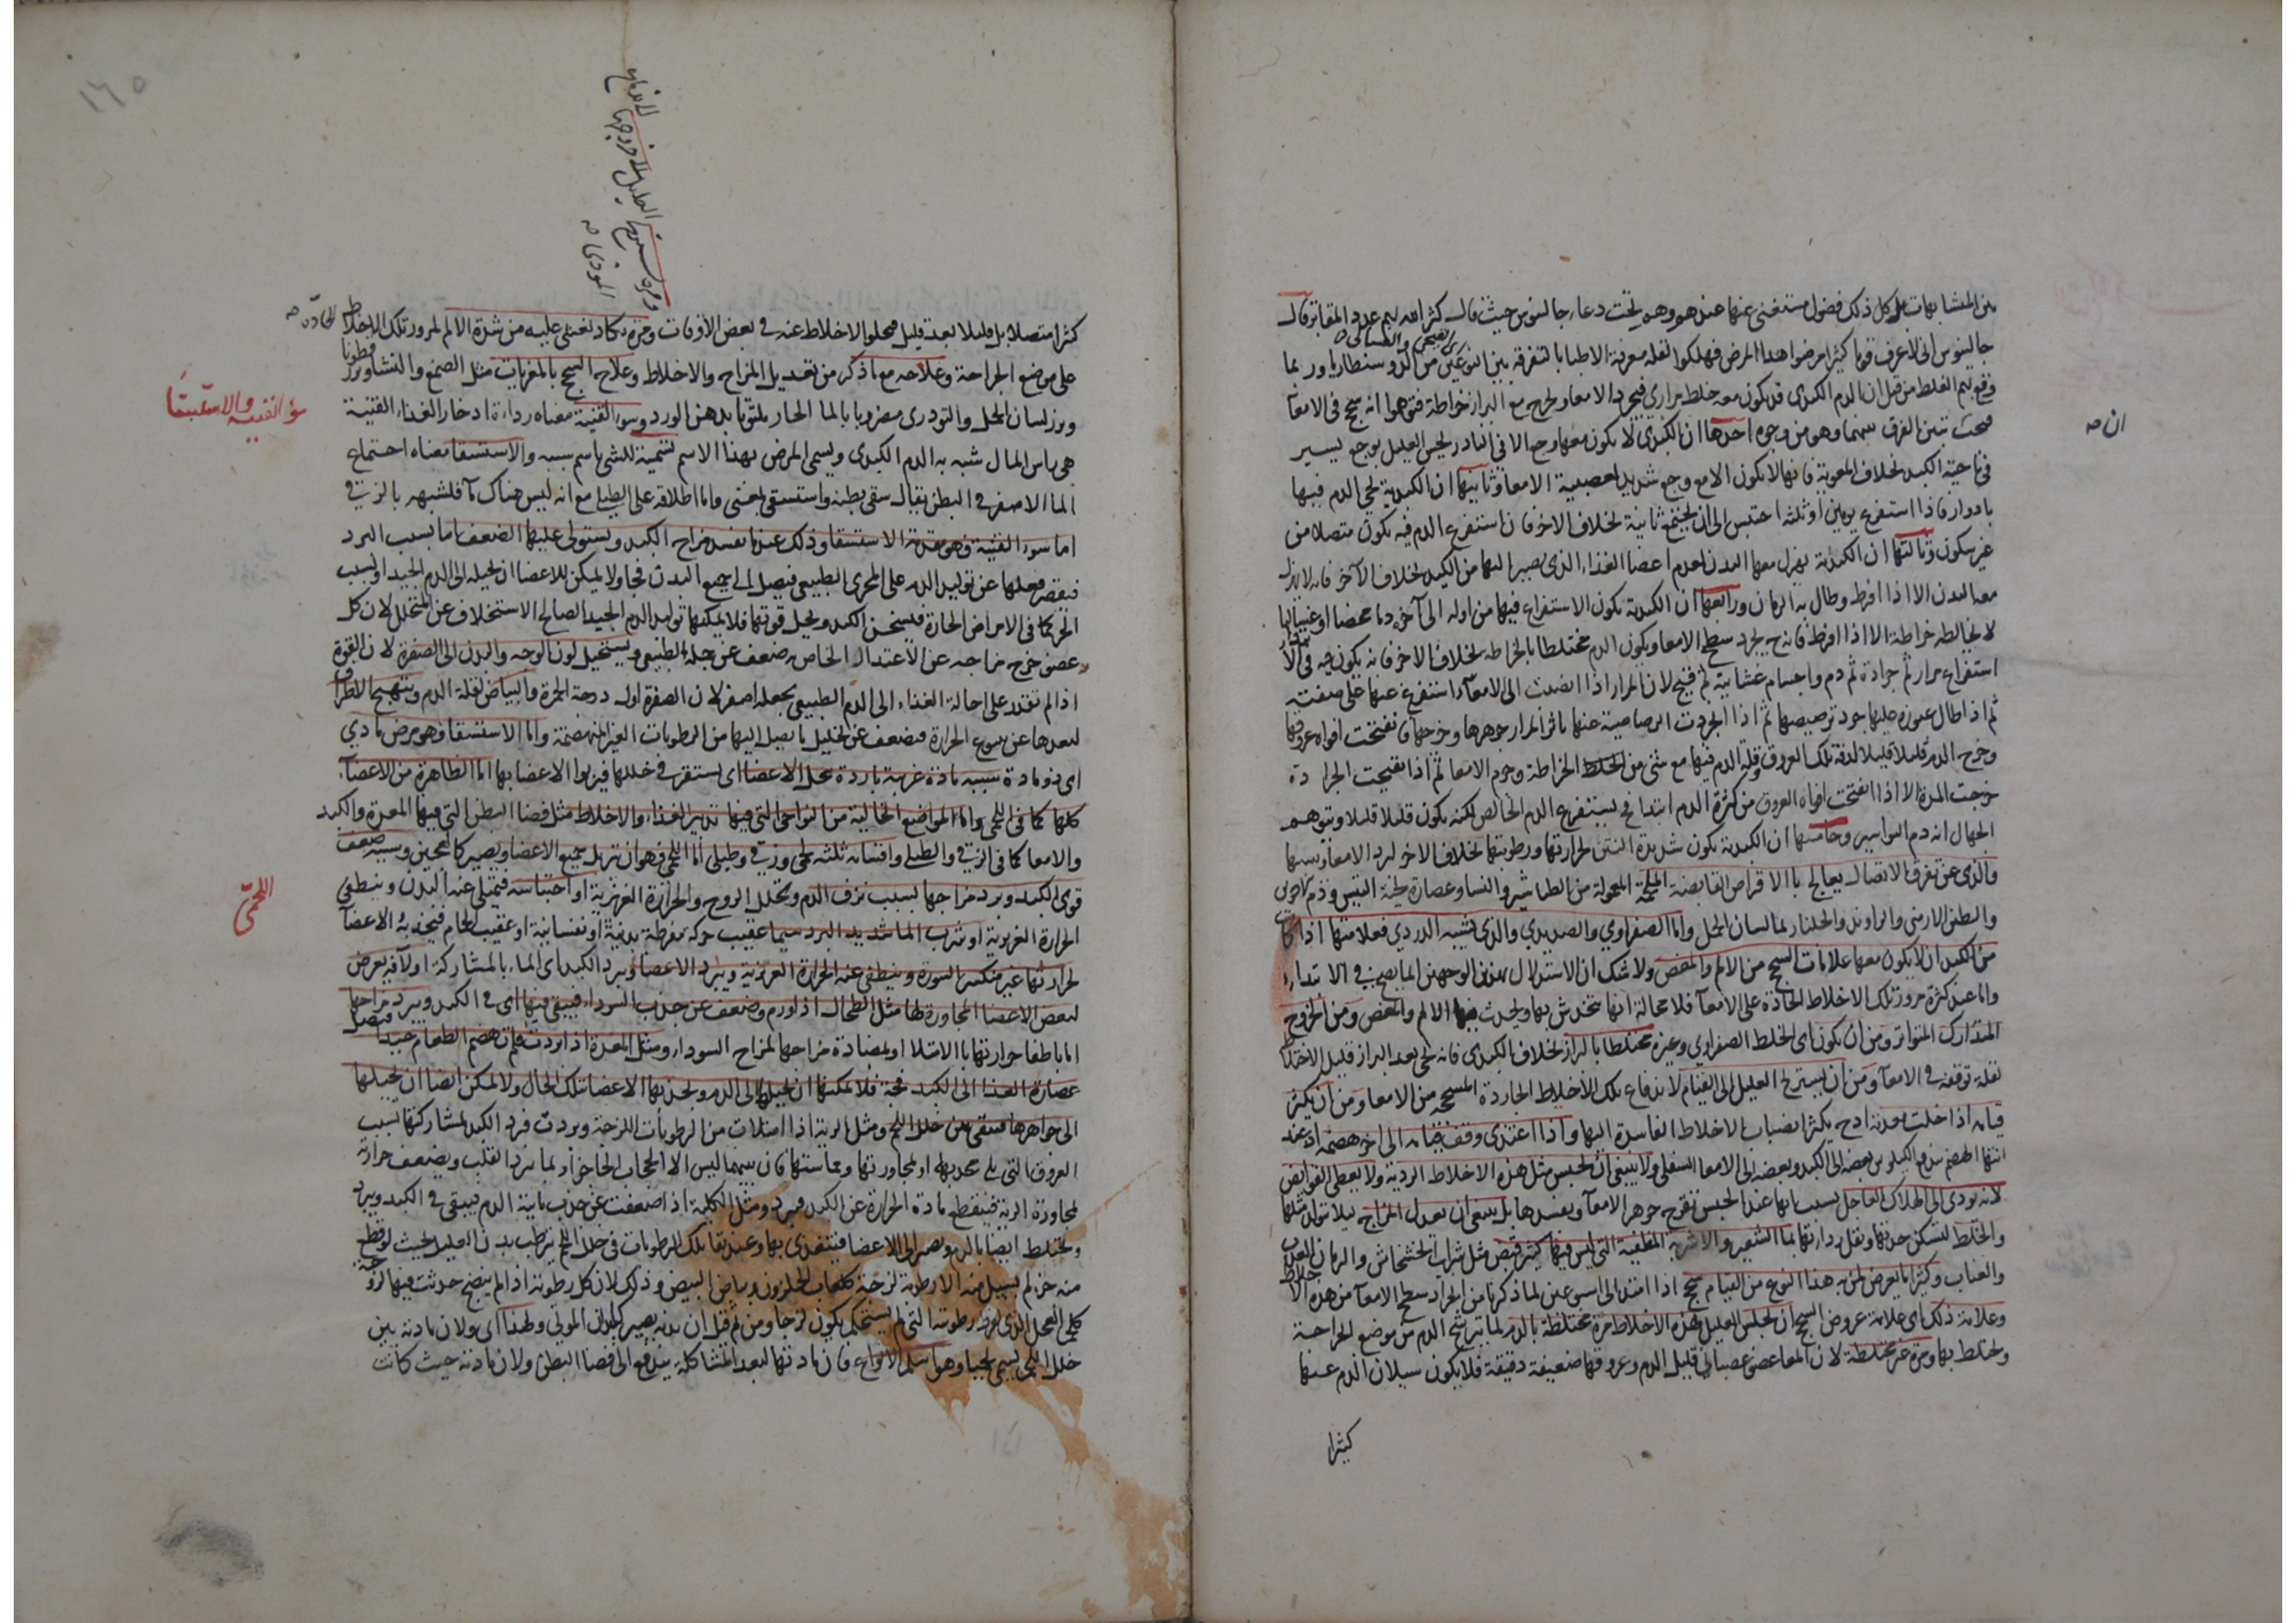 من المتشابهات بل كل ذلك فضول مستغنى عنها عند هو وهو تحت دعاء جالينوس حيث قال كثر الله لهم عدد المقابر قال
جالينوس انى لا عرف قوما كثيرا مرضوا هذا المرض فهلكوا لقلة معرفة الاطبا بالتفرقة بين النوعين من الدوسنطاريا وربما
الكبدي والمعائي
وقع لهم الغلط من قبل ان الدم الكبدى قد يكون معه خلط مرارى فيجرد الامعا ويخرج مع البراز خراطة فتوهموا انه سحج فى الامعآ
ان صح
فيجب تبين الفرق بينهما وهو من وجوه احدها ان الكبدى لا يكون معها وجع الا فى النادر يحس العليل بوجع يسير
فى ناحية الكبد بخلاف المعوية فانها لا يكون الا مع وجع شديد لعصبية الامعا وثانيها ان الكبدية يجى الدم فيها
بادوار فاذا استفرغ يومين او ثلثه احتبس الى ان يجتمع ثانية بخلاف الاخر فان استفرغ الدم فيه يكون متصلا من
غير سكون وثالثها ان الكبدية يهزل معها البدن لعدم اعضا الغذاء الذى يصير اليها من الكبد بخلاف الآخر فانه لا يهزل
معه البدن الا اذا افرط وطال به الزمان ورابعها ان الكبدية يكون الاستفراغ فيها من اوله الى آخره دما محضا او غساليا
لا يخالطه خراطة الا اذا افرط فانه ح يجرد سطح الامعا ويكون الدم مختلطا بالخراطه بخلاف الاخر فانه يكون فيه فى الا
استفراغ مرار ثم جرادة ثم دم واجسام غشائية ثم قيح لان المرار اذا انصبت الى الامعآء استفرغ عنها على صفته
ثم اذا طال عبوره عليها جرد ترصيصها ثم اذا انجردت الرصاصية عنها تاثر المرار جوهرها وخرجها فانفتحت افواه عروقها
وخرج الدم قليلا قليلا لدقة تلك العروق وقلة الدم فيها مع شئ من الخراطة وجرم الامعا ثم اذا تقيحت الجرادة
خرجت المدة الا اذا انفتحت افواه العروق من كثرة الدم ابتدا فح يستفرغ الدم الخالص لكنه يكون قليلا قليلا ويتوهم
الجهال انه دم البواسير وخامسها ان الكبدية يكون شديدة النتن لحرارتها ورطوبتها بخلاف الاخر لبرد الامعا ويبسها
والذى عن تفرق الاتصال يعالج بالاقراص القابضة الملحمة المعمولة من الطباشير والنشا وعصارة لحية التيس ودم الاخوين
والطين الارمنى والراوند والجلنار بما لسان الحمل واما الصفراوي والصديدي والذى يشبه الدردي فعلامتها اذا كا
من الكبد ان لا يكون معها علامات السحج من الالم والمغص ولا شك ان الاستدلال بهذين الوجهين انما يصح فى الابتداء
واما عند كثرة مرور تلك الاخلاط الحادة على الامعآ فلا محالة انها تنخدش بها ويحدث الالم والمغص ومن الخروج
المتدارك المتواتر ومن ان يكون اى الخلط الصفراوي وغيره مختلطا بالبراز بخلاف الكبدى فانه يجى بعد البراز قليل الاختلا
لقلة توقفه فى الامعآ ومن ان يستريح العليل الى القيام لاندفاع تلك الاخلاط الجاردة المسحجة من الامعا ومن ان يكثر
قيامه اذا خلت معدته اذ ح يكثر انصباب الاخلاط الفاسدة اليها واذا اغتذى وقف قيامه الى اخر هضمه اذ عند
انتها الهضم يندفع الكيلوس بعضه الى الكبد وبعضه الى الامعا السفلى ولا ينبغى ان يحبس مثل هذه الاخلاط الردية ولا يعطى القوابض
لانه يودى الى الهلاك العاجل بسبب انها عند الحبس تقرح جوهر الامعآ وتفسدها بل ينبغى ان يعدل المزاج ليلا يتولد مثلها
والخلط لتسكن حدتها وتقل رداءتها بما الشعير والاشربة المطفية التى ليس فيها كثير قبض مثل شراب الخشخاش والرمان العذب
والعناب وكثيرا ما يعرض لمن به هذا النوع من القيام سحج اذا امتد الى اسبوعين لما ذكرنا من انجراد سطح الامعآ من هذه الاخلاط
وعلامة ذلك اى علامة عروض السحج ان يجلس العليل هذه الاخلاط مرة مختلطة بالدم لما يترشح الدم من موضع الجراحة
ويختلط بها ومرة غير مختلطة لان المعا عضو عصبانى قليل الدم وعروقها ضعيفة دقيقة فلا يكون سيلان الدم عنها
كثيرا
١٦٥
كثيرا متصلا بل قليلا بعد قليل فيخلوا الاخلاط عنه فى بعض الاوقات ومرة يكاد يغشى عليه من شدة الالم لمرور تلك الاخلاط الحادة صح
على موضع الجراحة وعلاجه مع ما ذكر من تعديل المزاج والاخلاط وعلاج السحج بالمغريات مثل الصمغ والنشا وبزر قطونا
وبزر لسان الحمل والتودرى مضروبا بالما الحار ملتوتا بدهن الورد وسوء القنية معناه رداءة ادخار الغذاء القنية
سؤ القنيه والاستسقا
هى راس المال شبه به الدم الكبدى ويسمى المرض بهذا الاسم تسمية للشئ باسم سببه والاستسقا معناه اجتماع
الما الاصفر فى البطن يقال سقى بطنه واستسقى بمعنى واما اطلاقه على الطبلى مع انه ليس هناك مآ فلشبهه بالزقى
اما سوء القنية وهو مقدمة الاستسقا وذلك عندما يفسد مزاج الكبد ويستولى عليها الضعف اما بسبب البرد
فيقصر فعلها عن توليد الدم على المجرى الطبيعى فيصل الى جميع البدن فجا ولا يمكن للاعضا ان تحيله الى الدم الجيد او بسبب
الحر كما فى الامراض الحارة فيسخن الكبد ويحل قوتها فلا يمكنها توليد الدم الجيد الصالح للاستخلاف عن المتحلل لان كل
عضو خرج مزاجه عن الاعتدال الخاص به ضعف عن حمله الطبيعى ويستحيل لون الوجه والبدن الى الصفرة لان القوة
اذا لم تقدر على احالة الغذاء الى الدم الطبيعى يجعله اصفر لان الصفرة اول درجة الحمرة والبياض لقلة الدم ويتهيج الاطراف
لبعدها عن ينبوع الحرارة فيضعف عن تحليل ما يصل اليها من الرطوبات الغير المنهضمة واما الاستسقا فهو مرض مادي
اى ذو مادة سببه مادة غريبة باردة تخلل الاعضا اى يستقر فى خللها فيربوا الاعضا بها اما الظاهرة من الاعضآء
كلها كما فى اللحمى واما المواضع الخالية من النواحى التى فيها تدبير الغذاء والاخلاط مثل فضا البطن التى فيها المعدة والكبد
والامعا كما فى الزقى والطبلى واقسامه ثلثة لحمى وزقى وطبلى اما اللحمى فهو ان تربل جميع الاعضا ويصير كالعجين وسببه ضعف
اللحمى
قوى الكبد وبرد مزاجها بسبب نزف الدم وتحلل الروح والحرارة الغريزية او احتباسه فيمتلى عنه البدن وينطفى
الحرارة الغريزية او شرب الما شديد البرد سيما عقيب حركة مفرطة بدنية او نفسانية او عقيب الحمام فينجذب فى الاعضآ
لحرارتها غير منكسر السورة وينطفى عنه الحرارة الغريزية ويبرد الاعضا ويبرد الكبد اى الماء بالمشاركة او لآفة يعرض
لبعض الاعضا المجاورة لها مثل الطحال اذا ورم وضعف عن جذب السوداء فيبقى فيها اى فى الكبد ويبرد مزاجها
اما باطفا حرارتها بالامتلا او بمضادة مزاجها لمزاج السوداء ومثل المعدة اذا بردت فلم تهضم الطعام جيدا فيصل
عصارة الغذا الى الكبد فجة فلا يمكنها ان تحيلها الى الدم وتجذبها الاعضا بتلك الحال ولا يمكن ايضا ان تحيلها
الى جواهرها فيبقى بين خلل اللحم ومثل الرية اذا امتلات من الرطوبات اللزجة وبردت فبرد الكبد لمشاركتها بسبب
العروق التى يلى محدبها او لمجاورتها ومماستها فان بينهما ليس الا الحجاب الحاجز او لما يبرد القلب ويضعف حرارته
لمجاورة الرية فينقطع مادة الحرارة عن الكبد فيبرد ومثل الكلية اذا ضعفت عن جذب مايية الدم فيبقى فى الكبد ويبرد
ويختلط ايضا بالدم ويصير الى الاعضا فيتغذى بها وعند بقا تلك الرطوبات فى خلل اللحم يترطب بدن العليل بحيث لو قطع
منه جزء لم يسيل منه الا رطوبة لزجة كلعاب الحلزون وبياض البيض وذلك لان كل رطوبة اذا لم ينضج حدثت فيها لزوجة
كلحم العجل الذى لفرط رطوبته التى لم يستحكم يكون لزجا ومن ثم قيل ان بدنه يصير كبدن الموتى ولهذا اى ولان مادته بين
خلل اللحم يسمى لحميا وهو اسلم الانواع فان مادتها لبعد المشاكلة يندفع الى فضا البطن ولان مادته حيث كانت